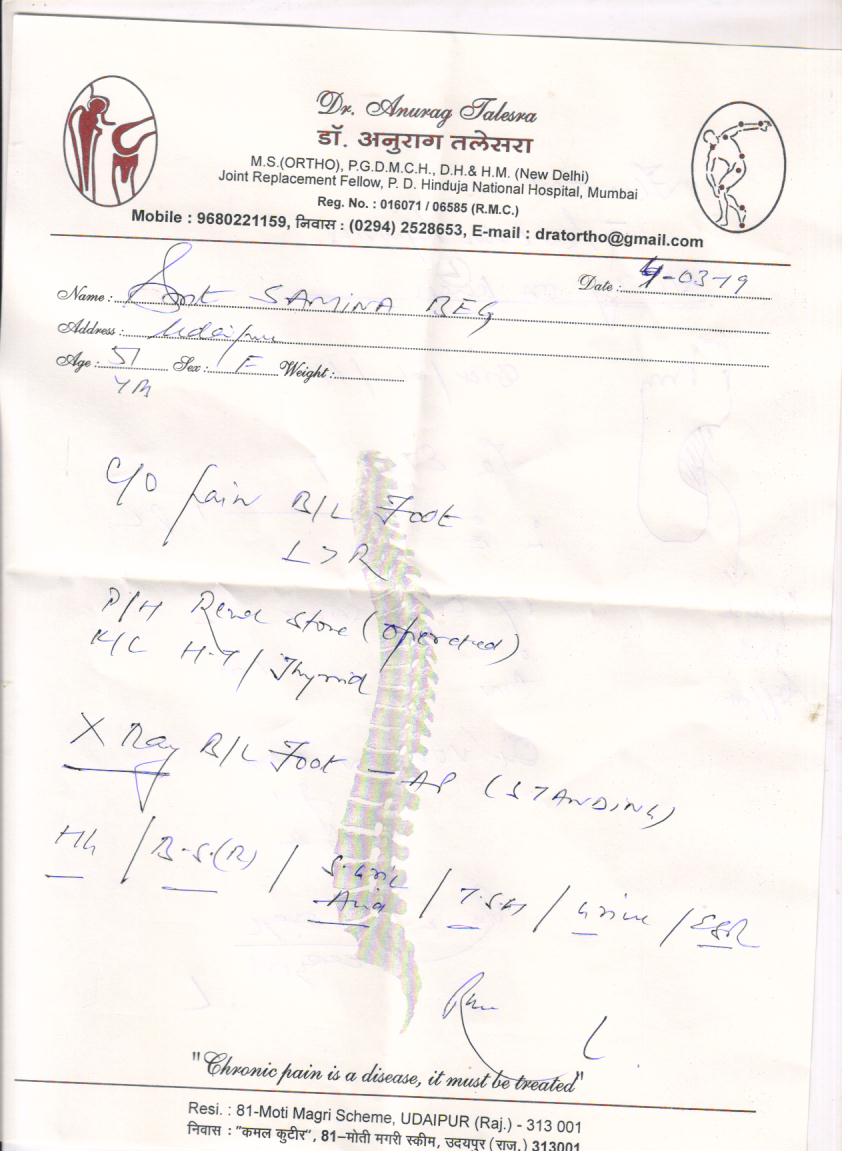 Dr. Anurag Talesra
डॉ. अनुराग तलेसरा
M.S.(ORTHO), P.G.D.M.C.H., D.H.& H.M. (New Delhi)
Joint Replacement Fellow, P. D. Hinduja National Hospital, Mumbai
Reg. No. : 016071 / 06585 (R.M.C.)
Mobile : 9680221159, निवास : (0294) 2528653, E-mail : dratortho@gmail.com
Date : -03-19
Name : Smt SAMINA BEG
Address : Udaipur
Age : 51 Sex : F Weight :
YR
C/O Pain B/L Foot
L > R
P/H Renal Stone (operated)
K/C H-T / Thyroid
X Ray B/L Foot - AP (STANDING)
Hb / B.S.(R) / S. Uric Acid / T.S.H / Urine / ESR
"Chronic pain is a disease, it must be treated"
Resi. : 81-Moti Magri Scheme, UDAIPUR (Raj.) - 313 001
निवास : "कमल कुटीर", 81–मोती मगरी स्कीम, उदयपुर (राज.) 313001